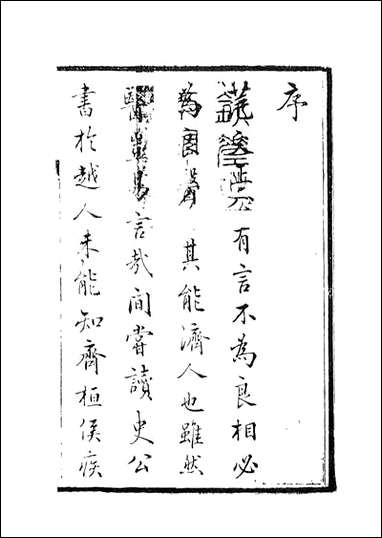 序
有言不為良相必
為良醫 其能濟人也雖然
醫豈易言哉間嘗讀史公
書於越人未能知齊桓侯疾